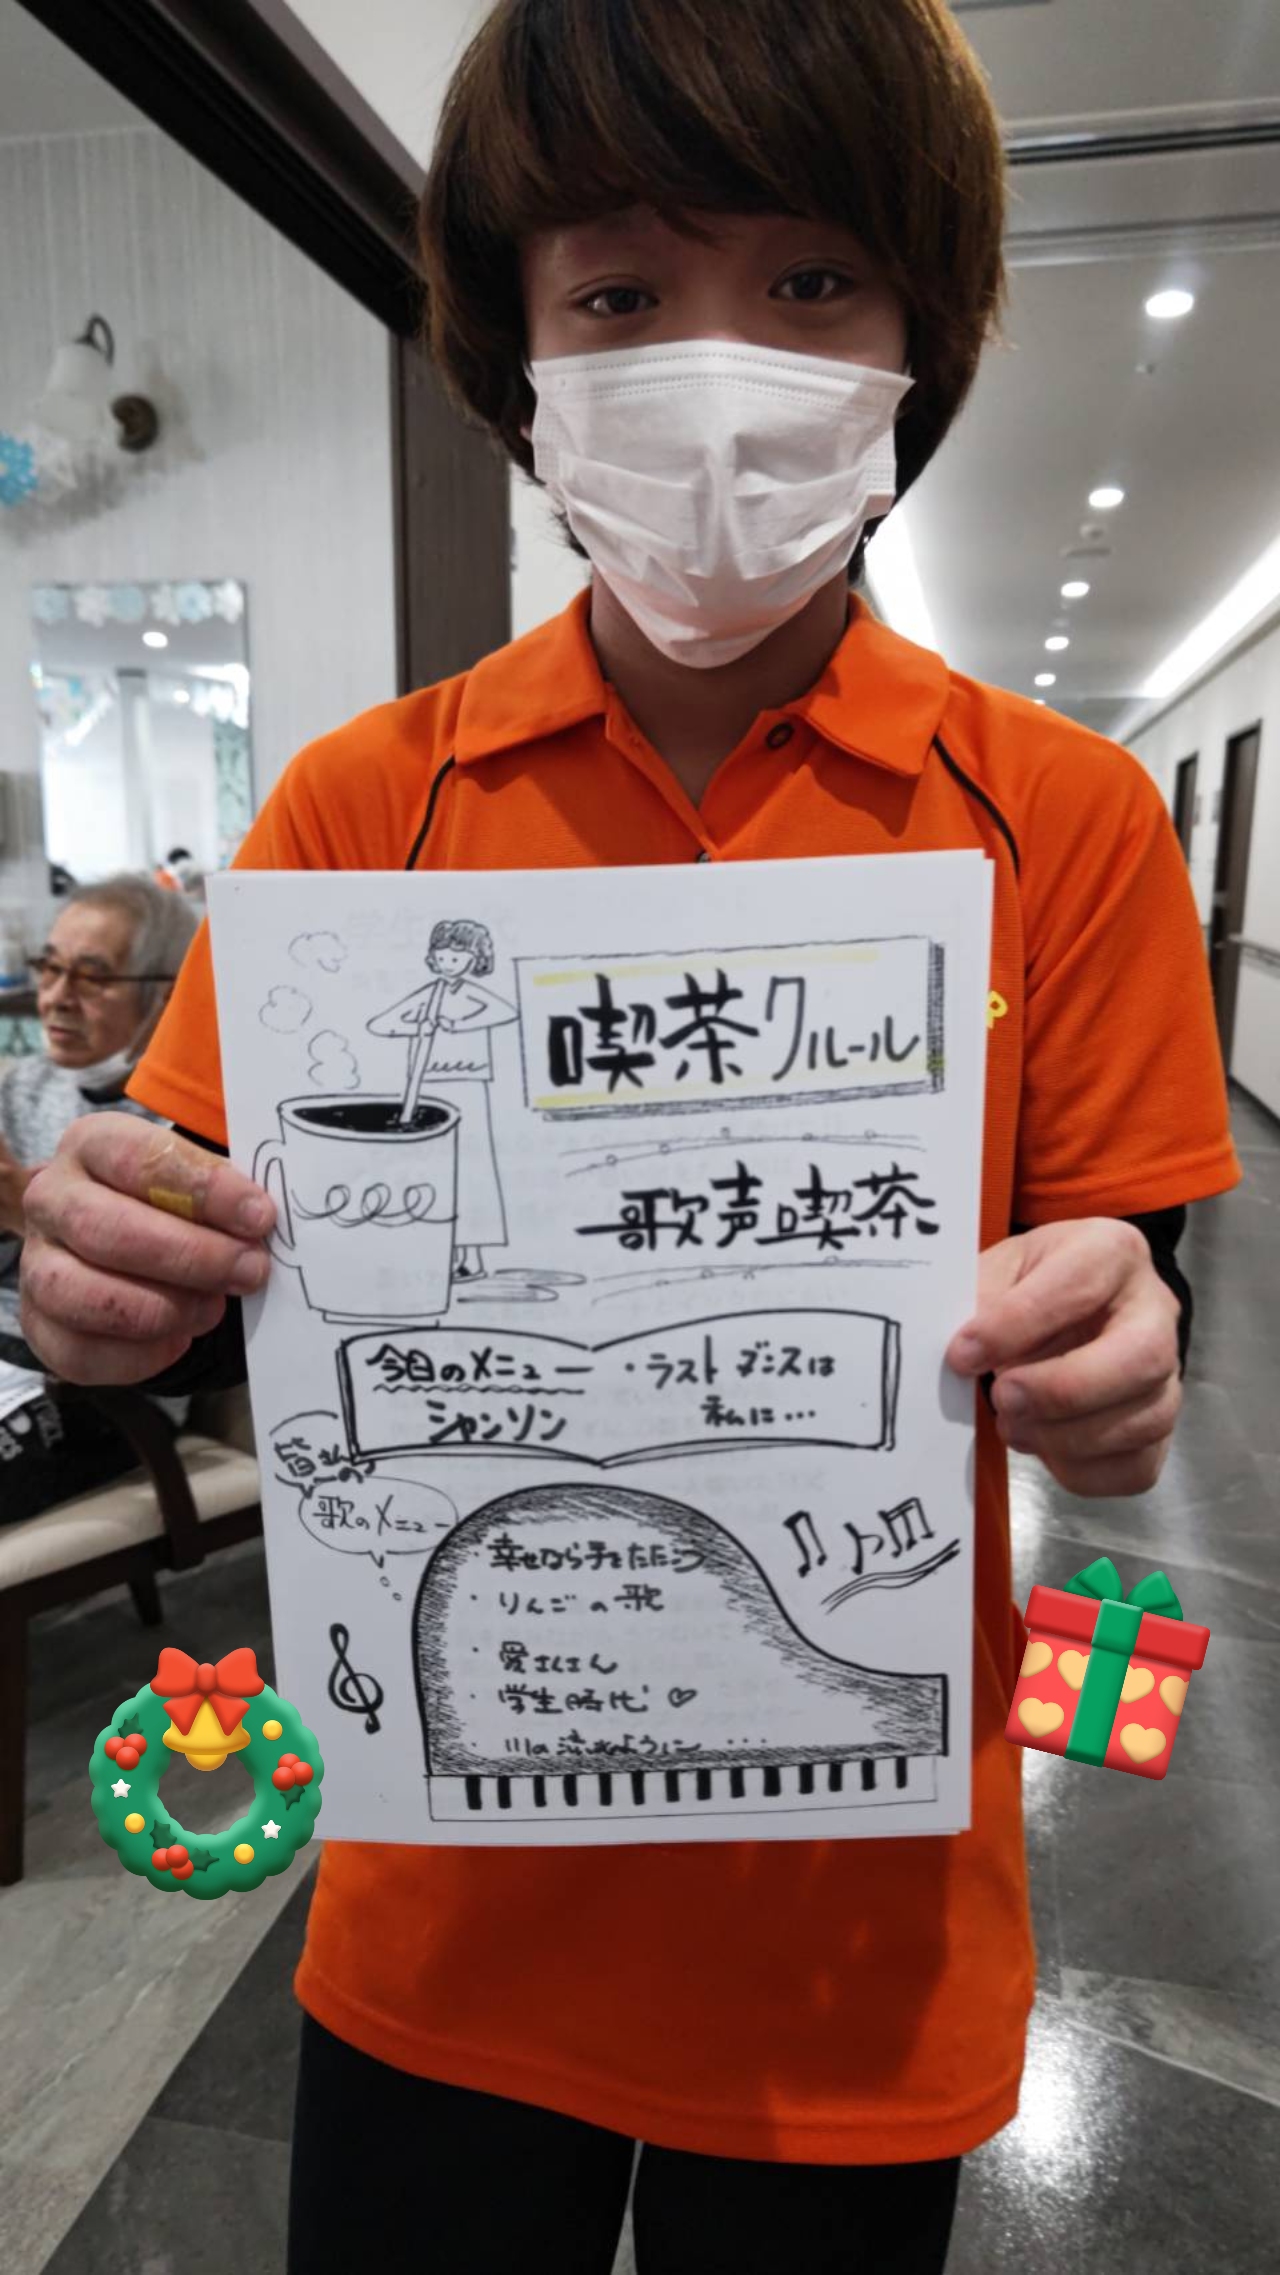 喫茶クルール
歌声喫茶
今日のメニュー
シャンソン
・ラストダンスは
私に…
皆さんの
歌のメニュー
・幸せなら手をたたこう
・りんごの歌
・愛さんさん
・学生時代♡
・川の流れのように…
R